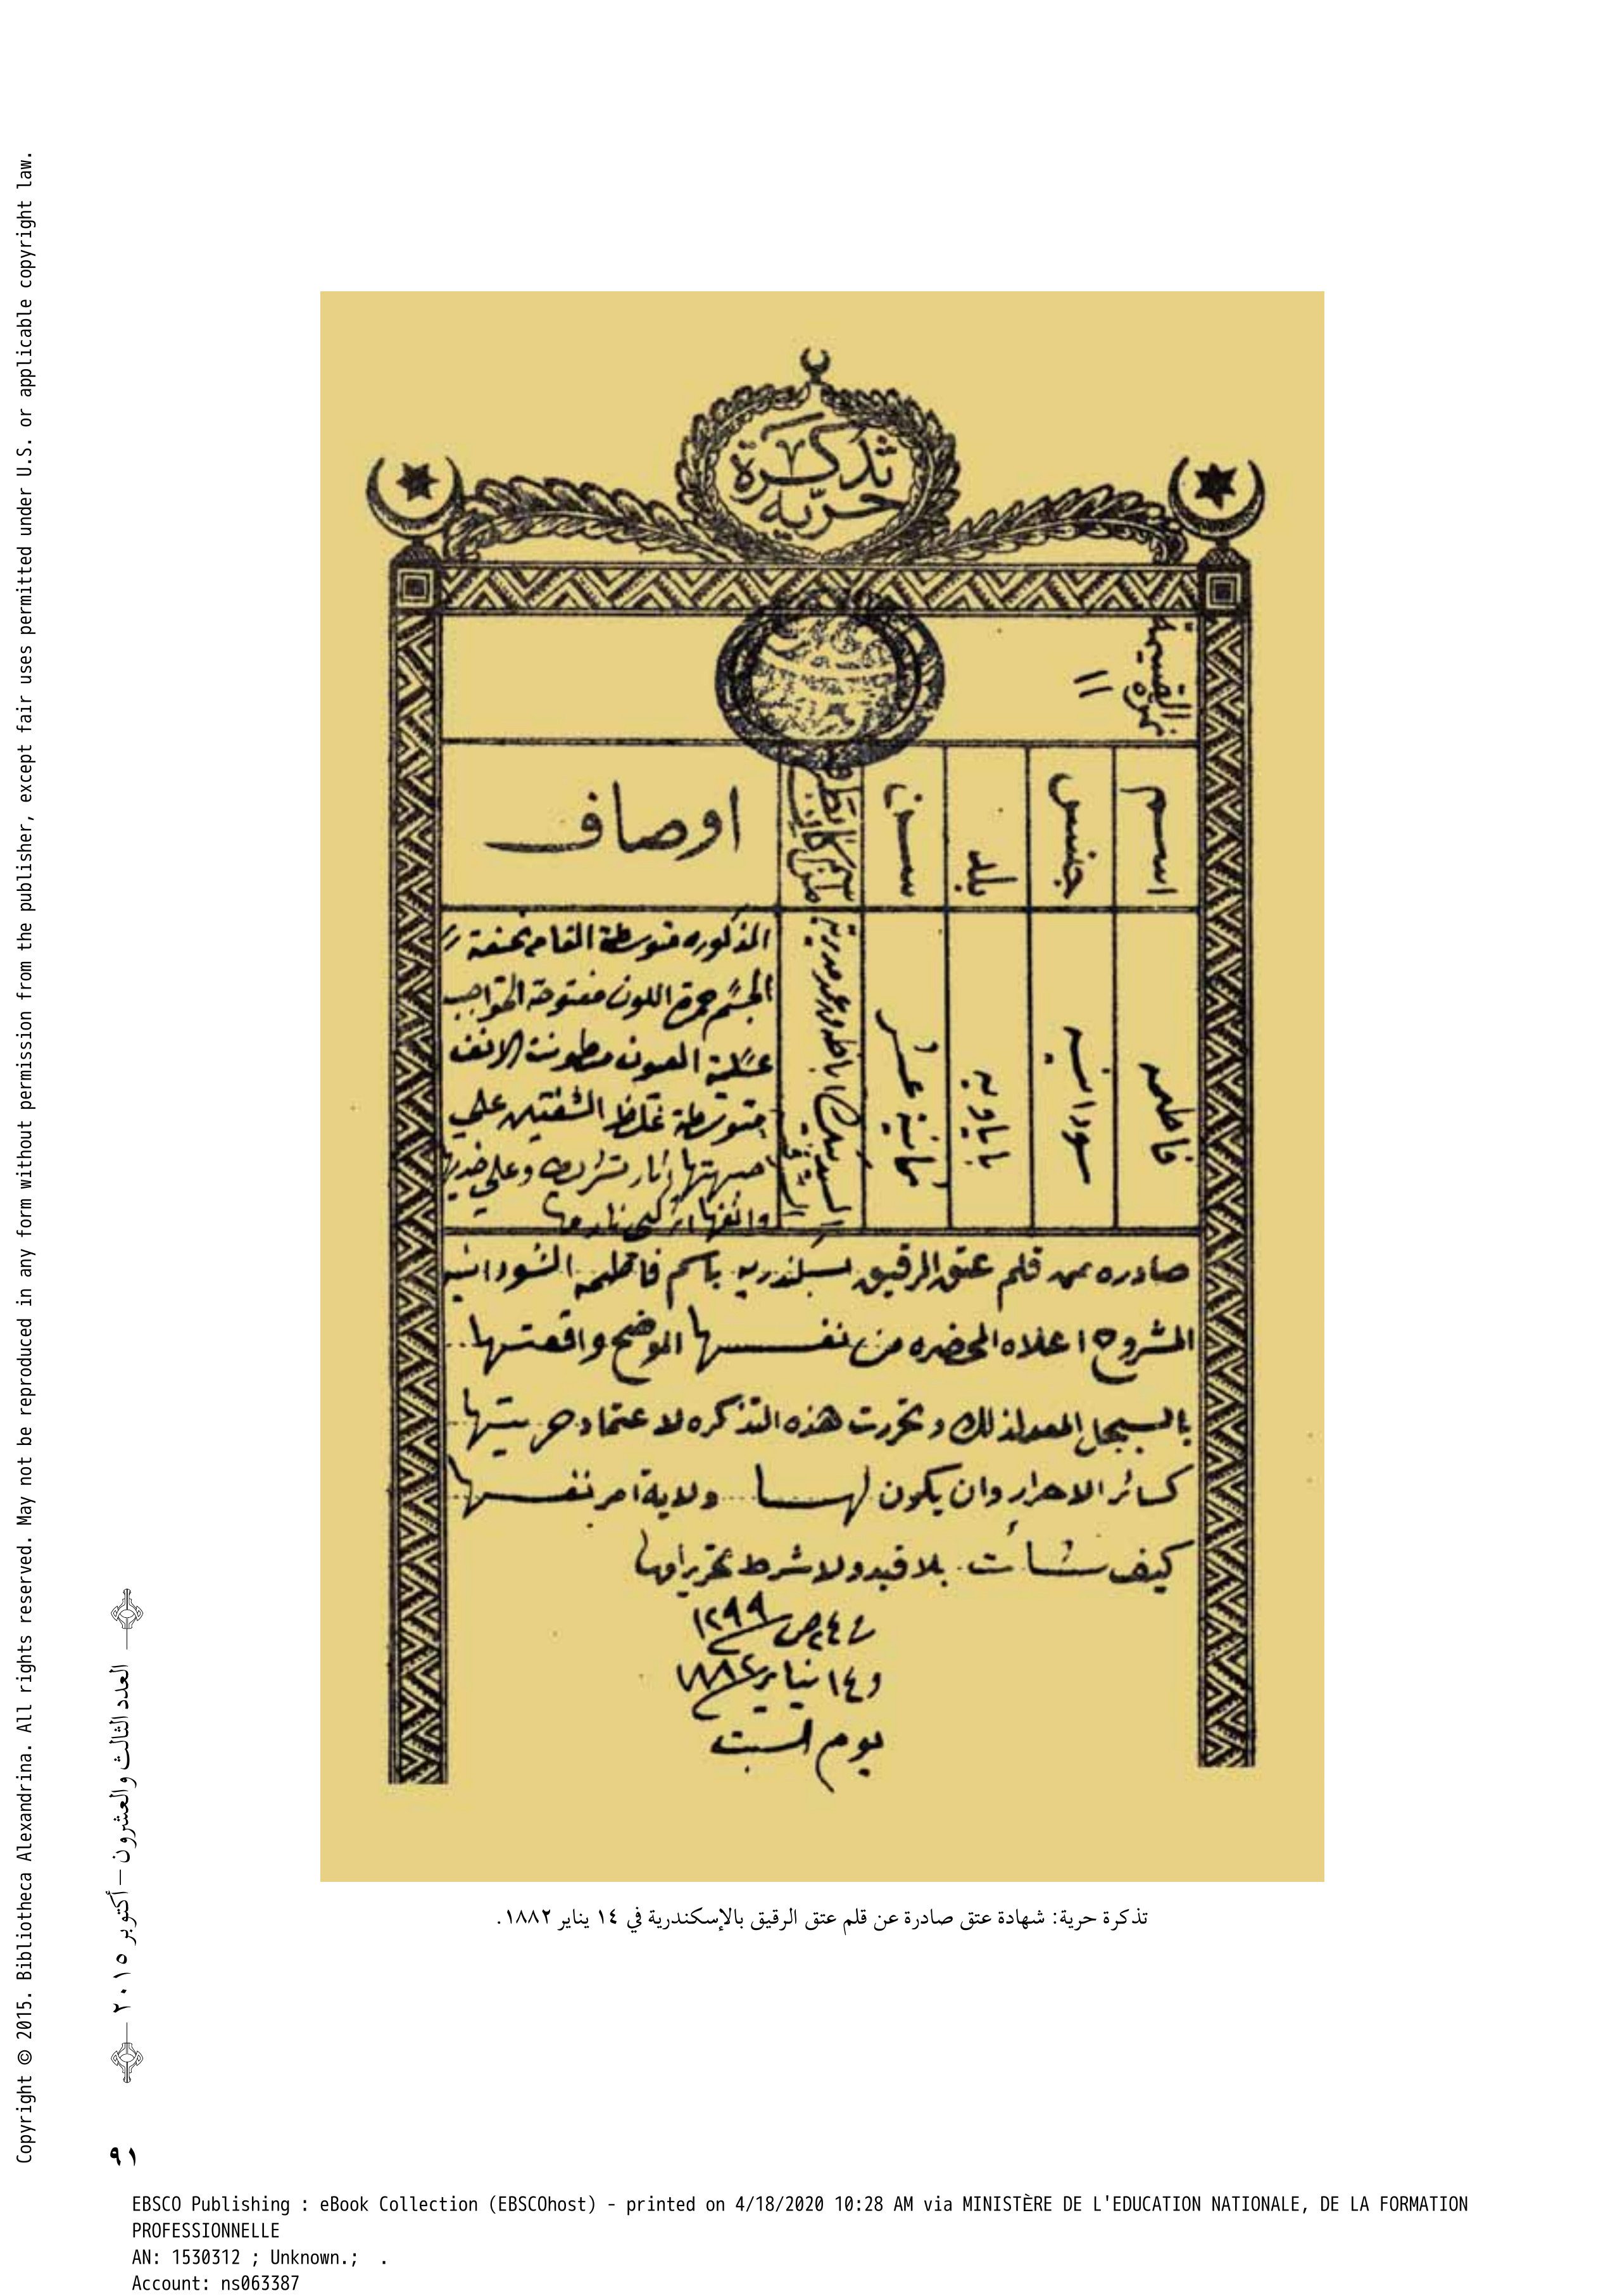 تذكرة
حرية
نمرة القسيمة
١١
اسم
جنس
بلد
سن
اوصاف
فاطمه
سودانيه
باباويه
ثمانية عشر
المذكوره متوسطة القامه نحيفة
الجسم خمرة اللون مفتوحة الحواجب
عسلية العيون الانف
متوسطة غلظ الشفتين على
اثار تشريط وعلى
صادره من قلم عتق الرقيق بسكندريه باسم فاطمه السودانيه
المشروح اعلاه المحضره من نفسها الموضح واقعتها
بالسجل المعد لذلك وتحررت هذه التذكره لاعتماد حريتها
كسائر الاحرار وان يكون لها ولاية امر نفسها
كيف شأت بلا قيد ولا شرط تحريرا
٢٤ ص ١٢٩٩
و١٤ يناير ١٨٨٢
يوم السبت
تذكرة حرية: شهادة عتق صادرة عن قلم عتق الرقيق بالإسكندرية في ١٤ يناير ١٨٨٢.
العدد الثالث والعشرون – أكتوبر ٢٠١٥
٩١
Copyright © 2015. Bibliotheca Alexandrina. All rights reserved. May not be reproduced in any form without permission from the publisher, except fair uses permitted under U.S. or applicable copyright law.
EBSCO Publishing : eBook Collection (EBSCOhost) - printed on 4/18/2020 10:28 AM via MINISTÈRE DE L'EDUCATION NATIONALE, DE LA FORMATION
PROFESSIONNELLE
AN: 1530312 ; Unknown.; .
Account: ns063387